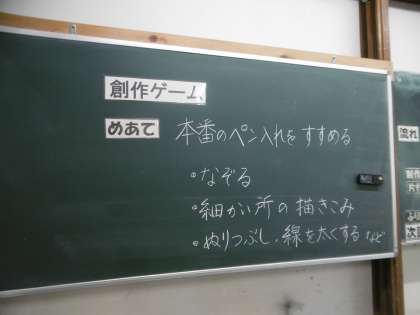 創作ゲーム
めあて 本番のペン入れをすすめる
・なぞる
・細かい所の描きこみ
・ぬりつぶし、線を太くする など
流れ